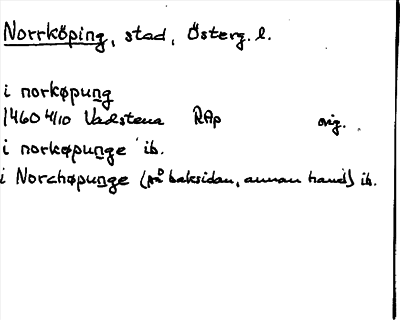 Norrköping, stad, Österg. l.
i norkøpung
1460 4/10 Vadstena RAp orig.
i norkøpunge ib.
i Norchøpunge (på baksidan, annan hand) ib.